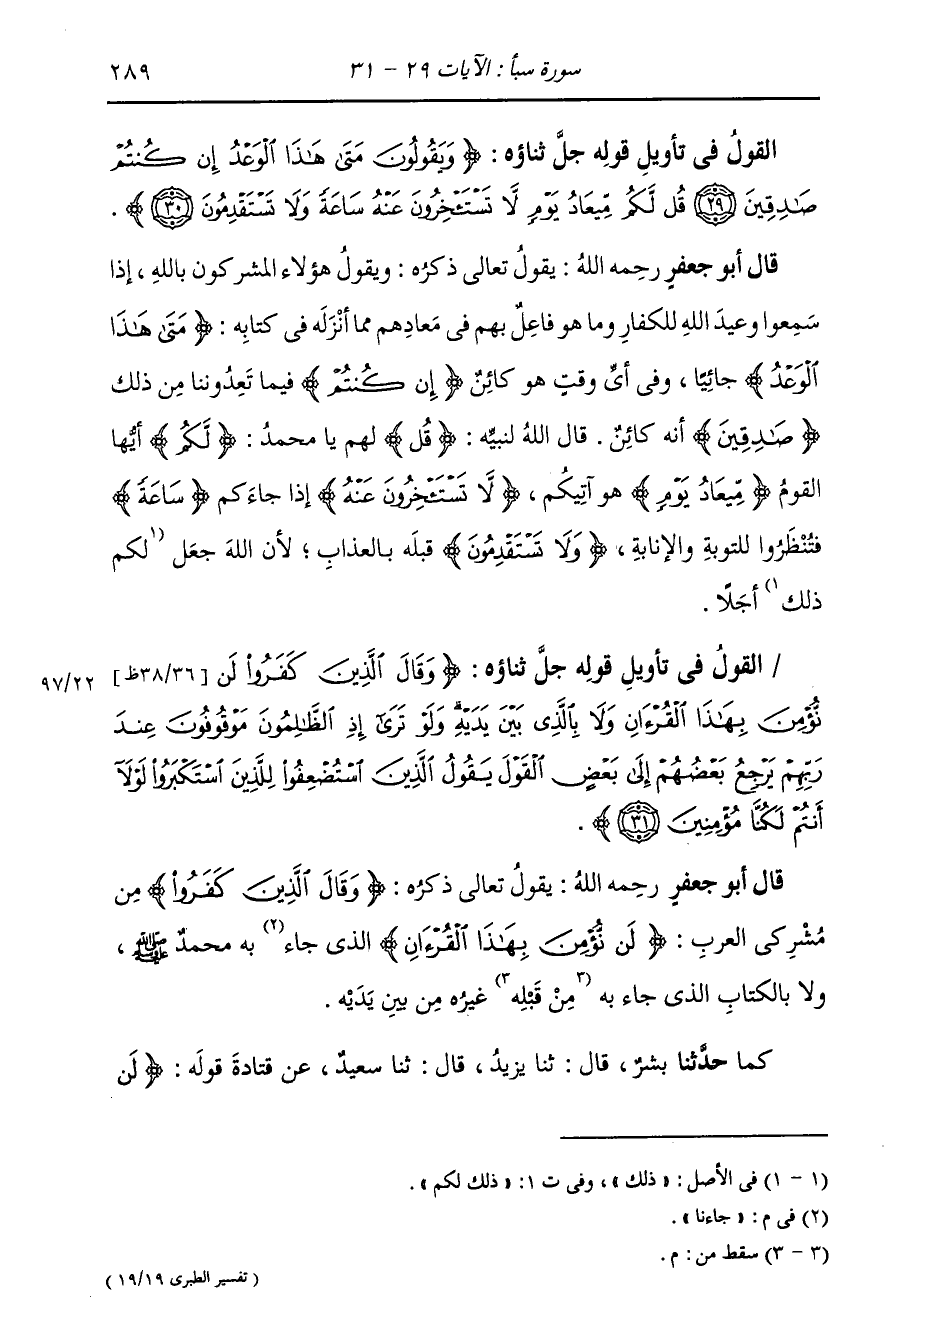 سورة سبأ : الآيات ٢٩ - ٣١ ٢٨٩
القولُ فى تأويلِ قولِه جلَّ ثناؤه : ﴿ وَيَقُولُونَ مَتَىٰ هَٰذَا ٱلْوَعْدُ إِن كُنتُمْ
صَٰدِقِينَ ﴿٢٩﴾ قُل لَّكُم مِّيعَادُ يَوْمٍ لَّا تَسْتَـْٔخِرُونَ عَنْهُ سَاعَةً وَلَا تَسْتَقْدِمُونَ ﴿٣٠﴾ ﴾ .
قال أبو جعفرٍ رحِمه اللهُ : يقولُ تعالى ذكرُه : ويقولُ هؤلاء المشركون باللهِ ، إذا
سَمِعوا وعيدَ اللهِ للكفارِ وما هو فاعِلٌ بهم فى مَعادِهم مما أنْزَلَه فى كتابِه : ﴿ مَتَىٰ هَٰذَا
ٱلْوَعْدُ ﴾ جائِيًا ، وفى أىِّ وقتٍ هو كائِنٌ ﴿ إِن كُنتُمْ ﴾ فيما تَعِدُوننا مِن ذلك
﴿ صَٰدِقِينَ ﴾ أنه كائِنٌ . قال اللهُ لنبيِّه : ﴿ قُل ﴾ لهم يا محمدُ : ﴿ لَّكُم ﴾ أيُّها
القومُ ﴿ مِّيعَادُ يَوْمٍ ﴾ هو آتِيكُم ، ﴿ لَّا تَسْتَـْٔخِرُونَ عَنْهُ ﴾ إذا جاءَكم ﴿ سَاعَةً ﴾
فتُنْظَرُوا للتوبةِ والإنابةِ ، ﴿ وَلَا تَسْتَقْدِمُونَ ﴾ قبلَه بالعذابِ ؛ لأن اللهَ جعَل (١لكم
ذلك١) أجَلًا .
/ القولُ فى تأويلِ قولِه جلَّ ثناؤه : ﴿ وَقَالَ ٱلَّذِينَ كَفَرُوا۟ لَن [٣٨/٣٦ظ] ٩٧/٢٢
نُّؤْمِنَ بِهَٰذَا ٱلْقُرْءَانِ وَلَا بِٱلَّذِى بَيْنَ يَدَيْهِ ۗ وَلَوْ تَرَىٰٓ إِذِ ٱلظَّٰلِمُونَ مَوْقُوفُونَ عِندَ
رَبِّهِمْ يَرْجِعُ بَعْضُهُمْ إِلَىٰ بَعْضٍ ٱلْقَوْلَ يَقُولُ ٱلَّذِينَ ٱسْتُضْعِفُوا۟ لِلَّذِينَ ٱسْتَكْبَرُوا۟ لَوْلَآ
أَنتُمْ لَكُنَّا مُؤْمِنِينَ ﴿٣١﴾ ﴾ .
قال أبو جعفرٍ رحِمه اللهُ : يقولُ تعالى ذكرُه : ﴿ وَقَالَ ٱلَّذِينَ كَفَرُوا۟ ﴾ مِن
مُشْرِكى العربِ : ﴿ لَن نُّؤْمِنَ بِهَٰذَا ٱلْقُرْءَانِ ﴾ الذى جاء(٢) به محمدٌ ﷺ ،
ولا بالكتابِ الذى جاء به (٣مِنْ قَبْلِه٣) غيرُه مِن بينِ يَدَيْه .
كما حدَّثنا بشرٌ ، قال : ثنا يزيدُ ، قال : ثنا سعيدٌ ، عن قتادةَ قولَه : ﴿ لَن
(١ - ١) فى الأصل : « ذلك » ، وفى ت ١ : « ذلك لكم » .
(٢) فى م : « جاءنا » .
(٣ - ٣) سقط من : م .
( تفسير الطبرى ١٩/١٩ )